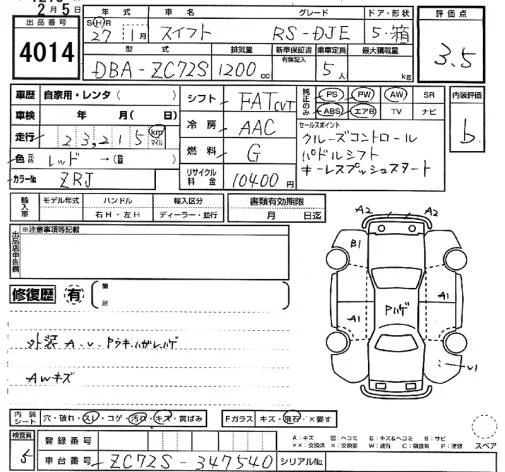 2月5日
出品番号
4014
年式 車名 グレード ドア・形状
SⒽR 27年1月 スイフト RS-DJE 5・箱
型式 排気量 新車保証書 有無記入 乗車定員 最大積載量
DBA-ZC72S 1200cc 5人 kg
評価点
3.5
車歴 自家用・レンタ( )
車検 年 月(日)
走行 23,215 km マイル
色 レッド →(
カラーNo. ZRJ
シフト FAT CVT
冷房 AAC
燃料 G
リサイクル料金 10400円
純正のみ PS PW AW SR
ABS エアB TV ナビ
セールスポイント
クルーズコントロール
パドルシフト
キーレスプッシュスタート
内装評価
b
輸入車 モデル年式 ハンドル 輸入区分
右H・左H ディーラー・並行
書類有効期限
月 日迄
出品店申告欄 ※注意事項等記載
修復歴 有
外装 A.U.
AWキズ
A2 A2
B1
A1 A1
U1
内装シート 穴・破れ・スレ・コゲ・汚れ・キズ・黄ばみ Fガラス キズ・飛石・×要す
スペア
検査員 5
登録番号
車台番号 ZC72S-347540 シリアルNo.
A:キズ